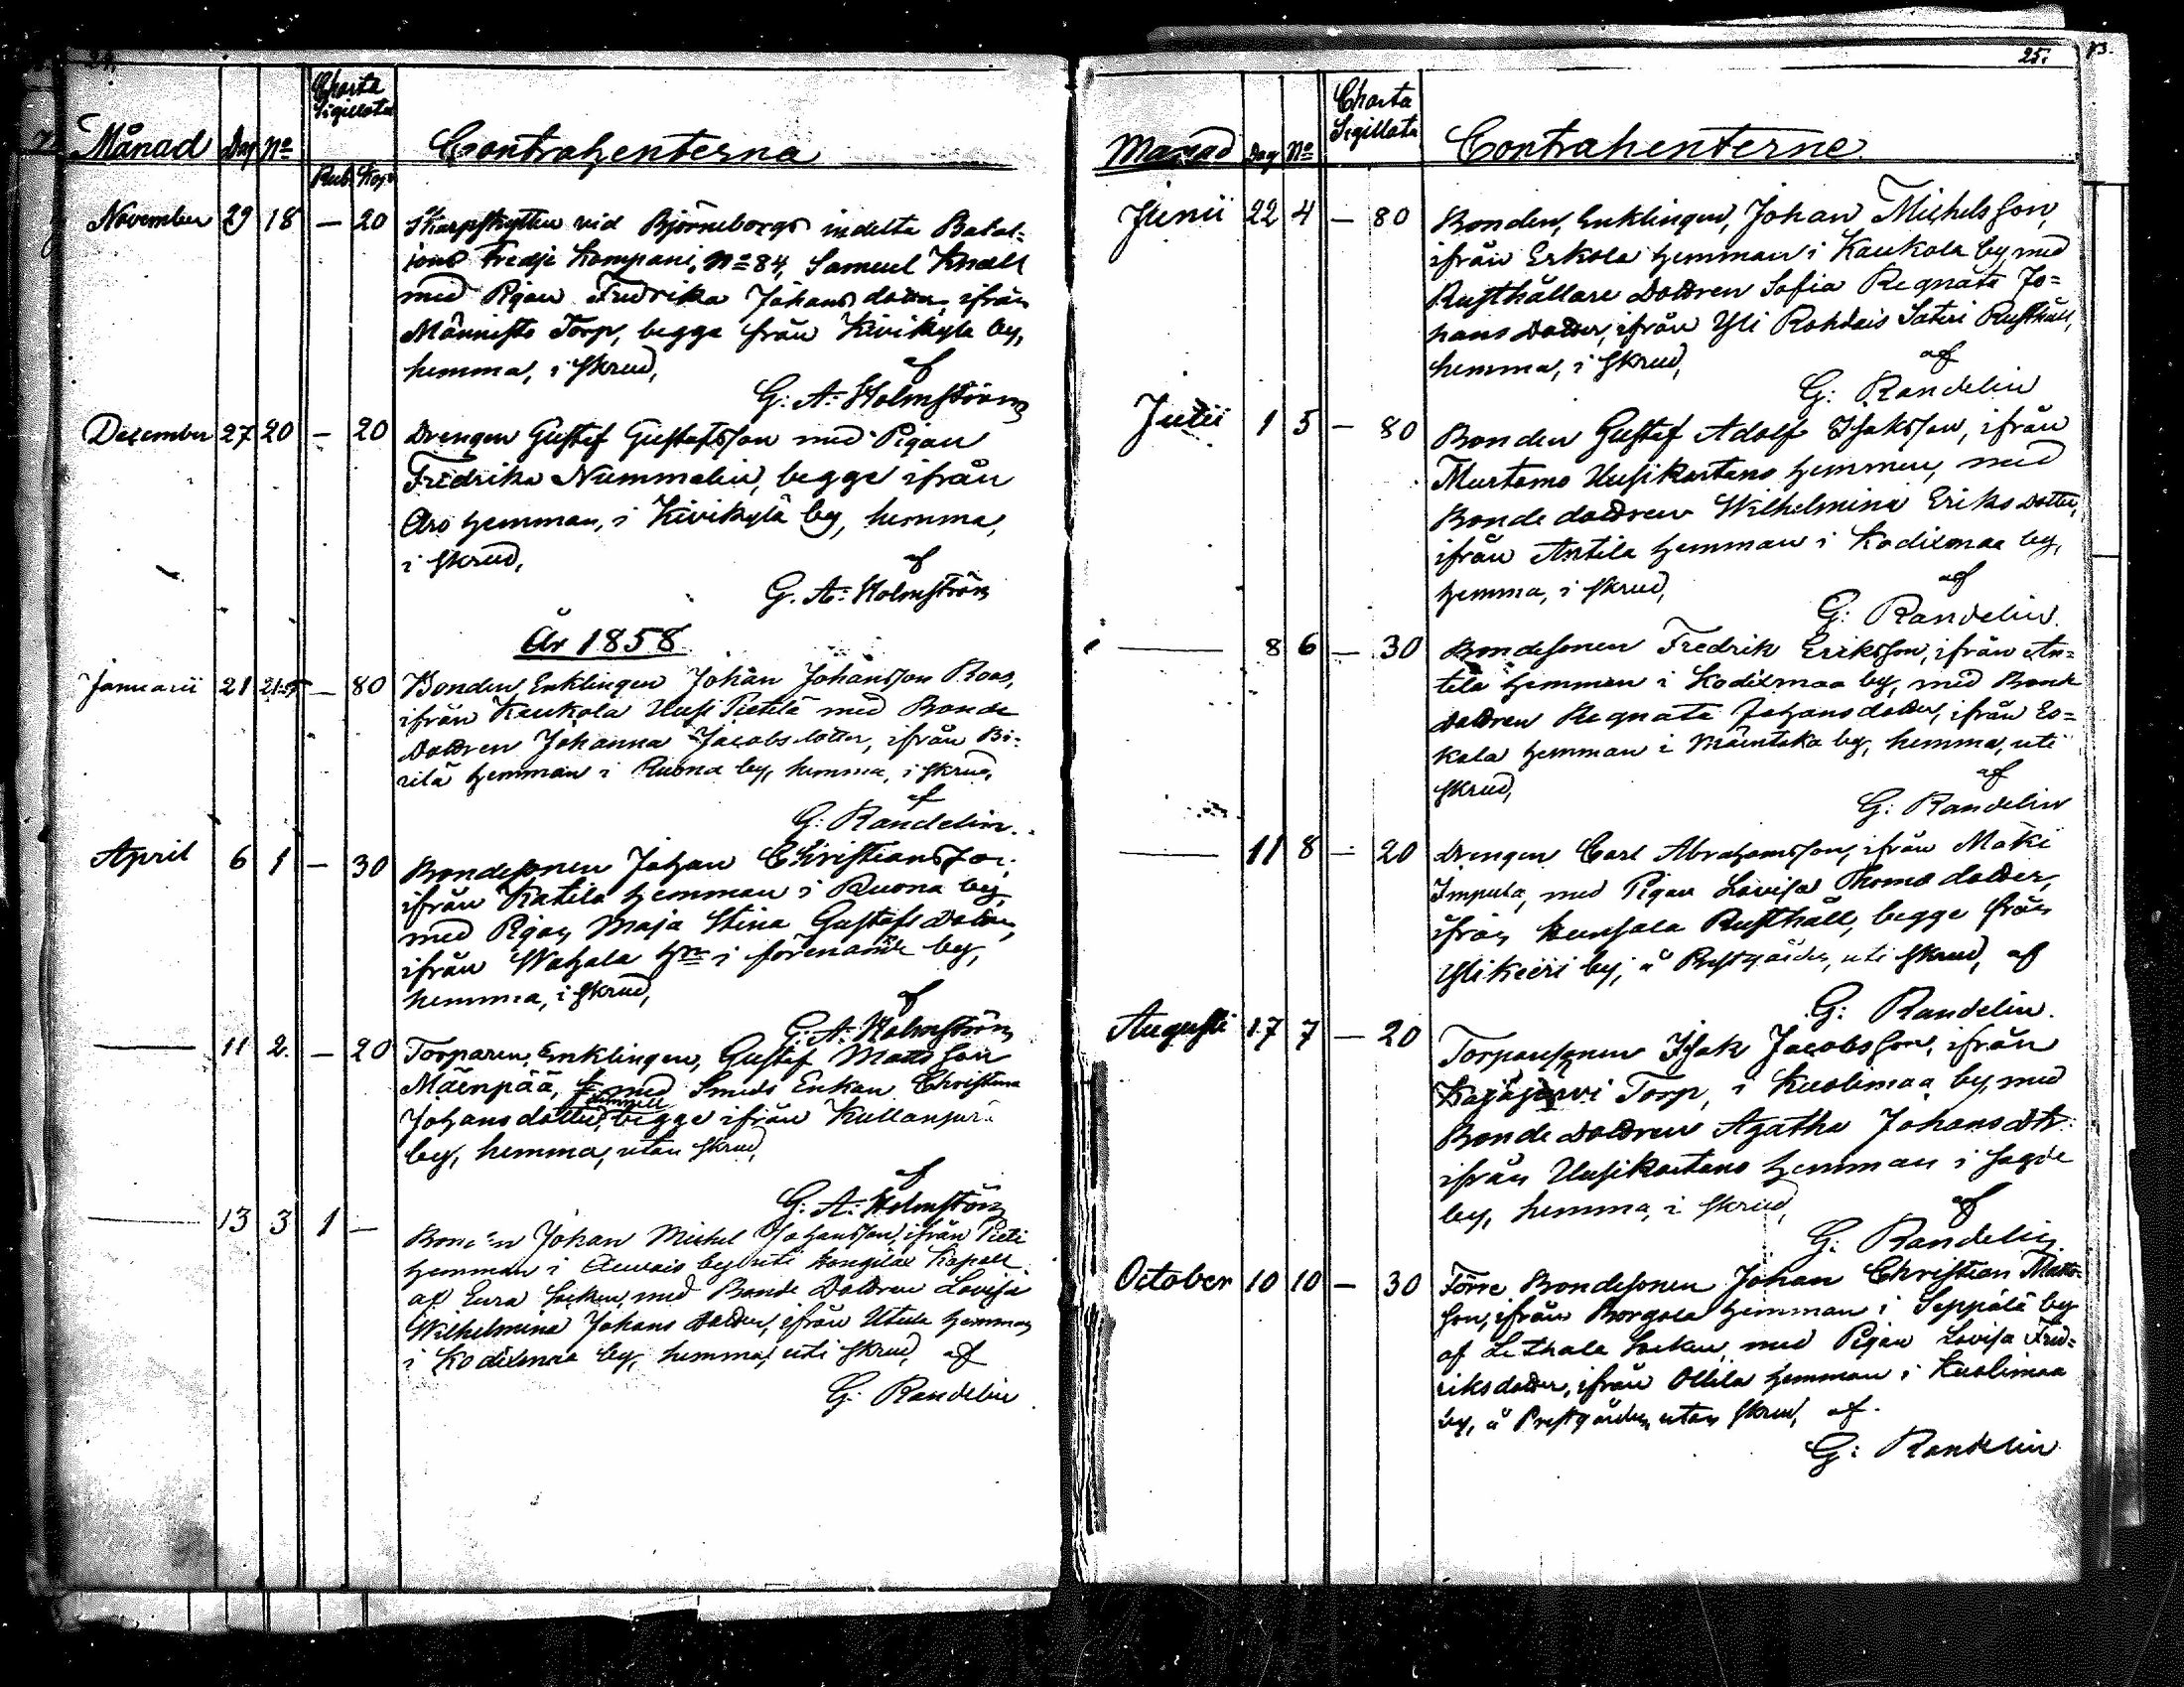 24.
Charta
Sigillata
Månad Dag No Contrahenterna
Rub. Kop.
November 29 18 — 20 Skarpskytten vid Björneborgs indelta Batal-
jons Tredje Kompani, No 84, Samuel Knall
med Pigan Fredrika Johans dotter, ifrån
Männistö Torp, begge från Kivikylä by,
hemma, i skrud, af
G: A: Holmström
December 27 20 — 20 Drengen Gustef Gustafsson med Pigan
Fredrika Nummelin, begge ifrån
Aro hemman, i Kivikylä by, hemma,
i skrud, af
G. A: Holmström
År 1858
Januarii 21 — 80 Bonden, Enklingen Johan Johansson Roos,
ifrån Kaukola Uusi Pietilä med Bonde
Dottren Johanna Jacobs dotter, ifrån Bi-
rilä hemman i Ruona by, hemma, i skrud,
af
G: Randelin.
April 6 1 — 30 Bondesonen Johan Christiansson,
ifrån Katila hemman i Ruona by,
med Pigan Maja Stina Gustafs dotter,
ifrån Wahala hn i förenämde by,
hemma, i skrud, af
G. A. Holmström
— 11 2. — 20 Torparen, Enklingen, Gustaf Matts son
Mäenpää, med Smeds Enkan Christina
Johans dotter, begge ifrån Kullanperä
by, hemma, utan skrud,
af
G: A: Holmström
— 13 3 1 — Bonden Johan Michel Johansson, ifrån Pieti
hemman i Auvais by uti Hongilax Kapell
af Eura Socken, med Bonde Dottren Lovisa
Wilhelmina Johans dotter, ifrån Utula hemman
i Kodixmaa by, hemma, uti skrud, af
G: Randelin
25.
Charta
Sigillata
Manad Dag No Contrahenterne
Junii 22 4 — 80 Bonden, Enklingen, Johan Michelsson,
ifrån Erkola hemman i Kaukola by med
Rusthållare Dottren Sofia Regnata Jo-
hans dotter, ifrån Yli Rohdais Säteri Rusthåll,
hemma, i skrud, af
G: Randelin
Julii 1 5 — 80 Bonden Gustaf Adolf Isaksson, ifrån
Murtamo Uusikartano hemman, med
Bonde dottren Wilhelmina Eriks dotter,
ifrån Antila hemman i Kodixmaa by,
hemma, i skrud, af
G: Randelin.
— 8 6 — 30 Bondesonen Fredrik Eriksson, ifrån An-
tila hemman i Kodixmaa by, med Bonde
dottren Regnata Johans dotter, ifrån Eo-
kola hemman i Mäentaka by, hemma, uti
skrud, af
G: Randelin
— 11 8 — 20 Drengen Carl Abrahamsson, ifrån Mäki
Impula, med Pigan Lovisa Thomas dotter,
ifrån Kunsala Rusthåll, begge från
Ylikieri by, å Prestgården, uti skrud, af
G: Randelin.
Augusti 17 7 — 20 Torparesonen Isak Jacobsson, ifrån
Kajajärvi Torp, i Kuolimaa by, med
Bonde dottren Agatha Johans dtr
ifrån Uusikartano hemman i sagde
by, hemma, i skrud, af
G: Randelin
October 10 10 — 30 Förre Bondesonen Johan Christian Matts-
son, ifrån Borgola hemman i Seppälä by
af Lethala Socken, med Pigan Lovisa Fred-
riksdotter, ifrån Ollila hemman i Kuolimaa
by, å Prestgården, utan skrud, af
G: Randelin